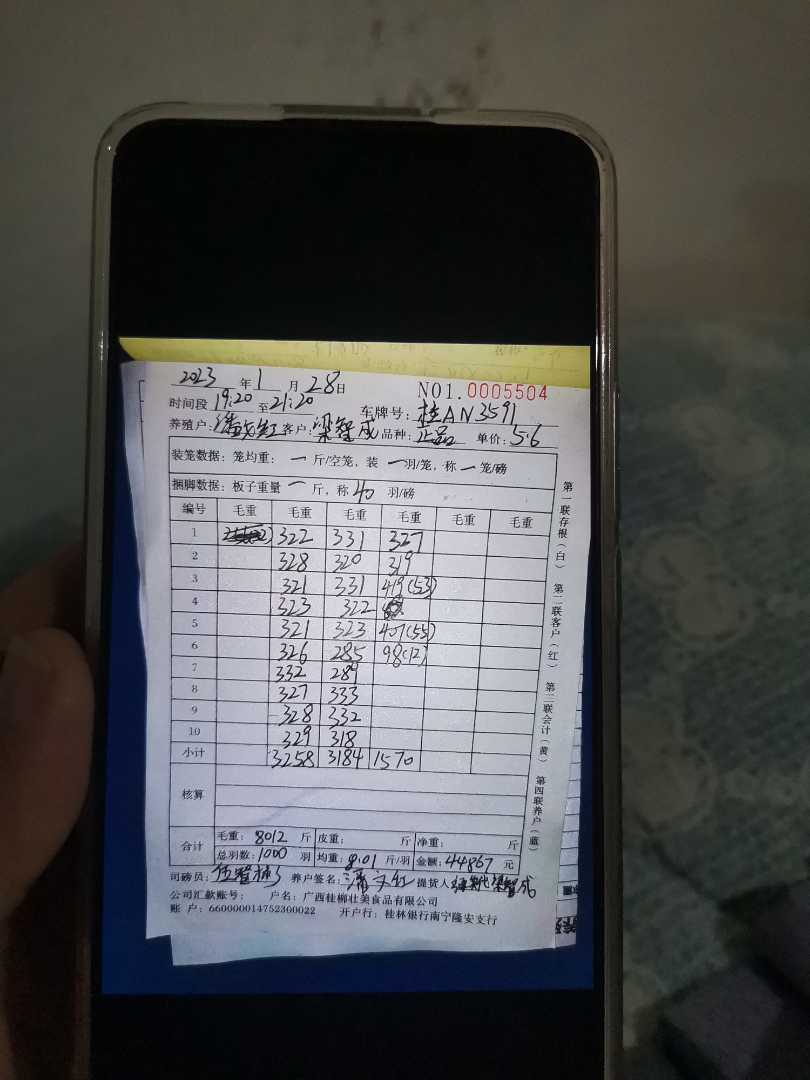 2023 年 1 月 28 日 NO1.0005504
时间段 19:20 至 21:20 车牌号: 桂AN3591
养殖户: 红 客户: 梁智成 品种: 正品 单价: 5.6
装笼数据: 笼均重: 一 斤/空笼, 装 一 羽/笼, 称 一 笼/磅
捆脚数据: 板子重量 一 斤, 称 40 羽/磅
编号 毛重 毛重 毛重 毛重 毛重 毛重
1 322 331 327
2 328 320 319
3 321 331 419(53)
4 323 322
5 321 323 407(55)
6 326 285 98(12)
7 332 289
8 327 333
9 328 332
10 329 318
小计 3258 3184 1570
核算
合计 毛重: 8012 斤 皮重: 斤 净重: 斤
总羽数: 1000 羽 均重: 8.01 斤/羽 金额: 44867 元
司磅员: 养户签名: 红 提货人 梁智成
公司汇款账号: 户名: 广西桂柳壮美食品有限公司
账 户: 660000014752300022 开户行: 桂林银行南宁隆安支行
第一联存根(白) 第二联客户(红) 第三联会计(黄) 第四联养户(蓝)